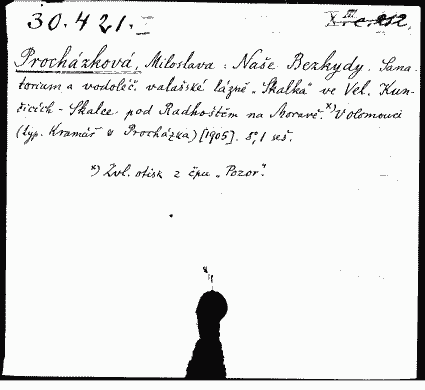 30.421.
Procházková, Miloslava: Naše Bezkydy. Sana-
torium a vodoléč. valašské lázně „Skalka“ ve Vel. Kun-
čicích - Skalce pod Radhoštěm na Moravě.ˣ) V Olomouci
(typ. Kramář & Procházka) [1905]. 8°, 1 seš.
ˣ) Zvl. otisk z čpu „Pozor“.